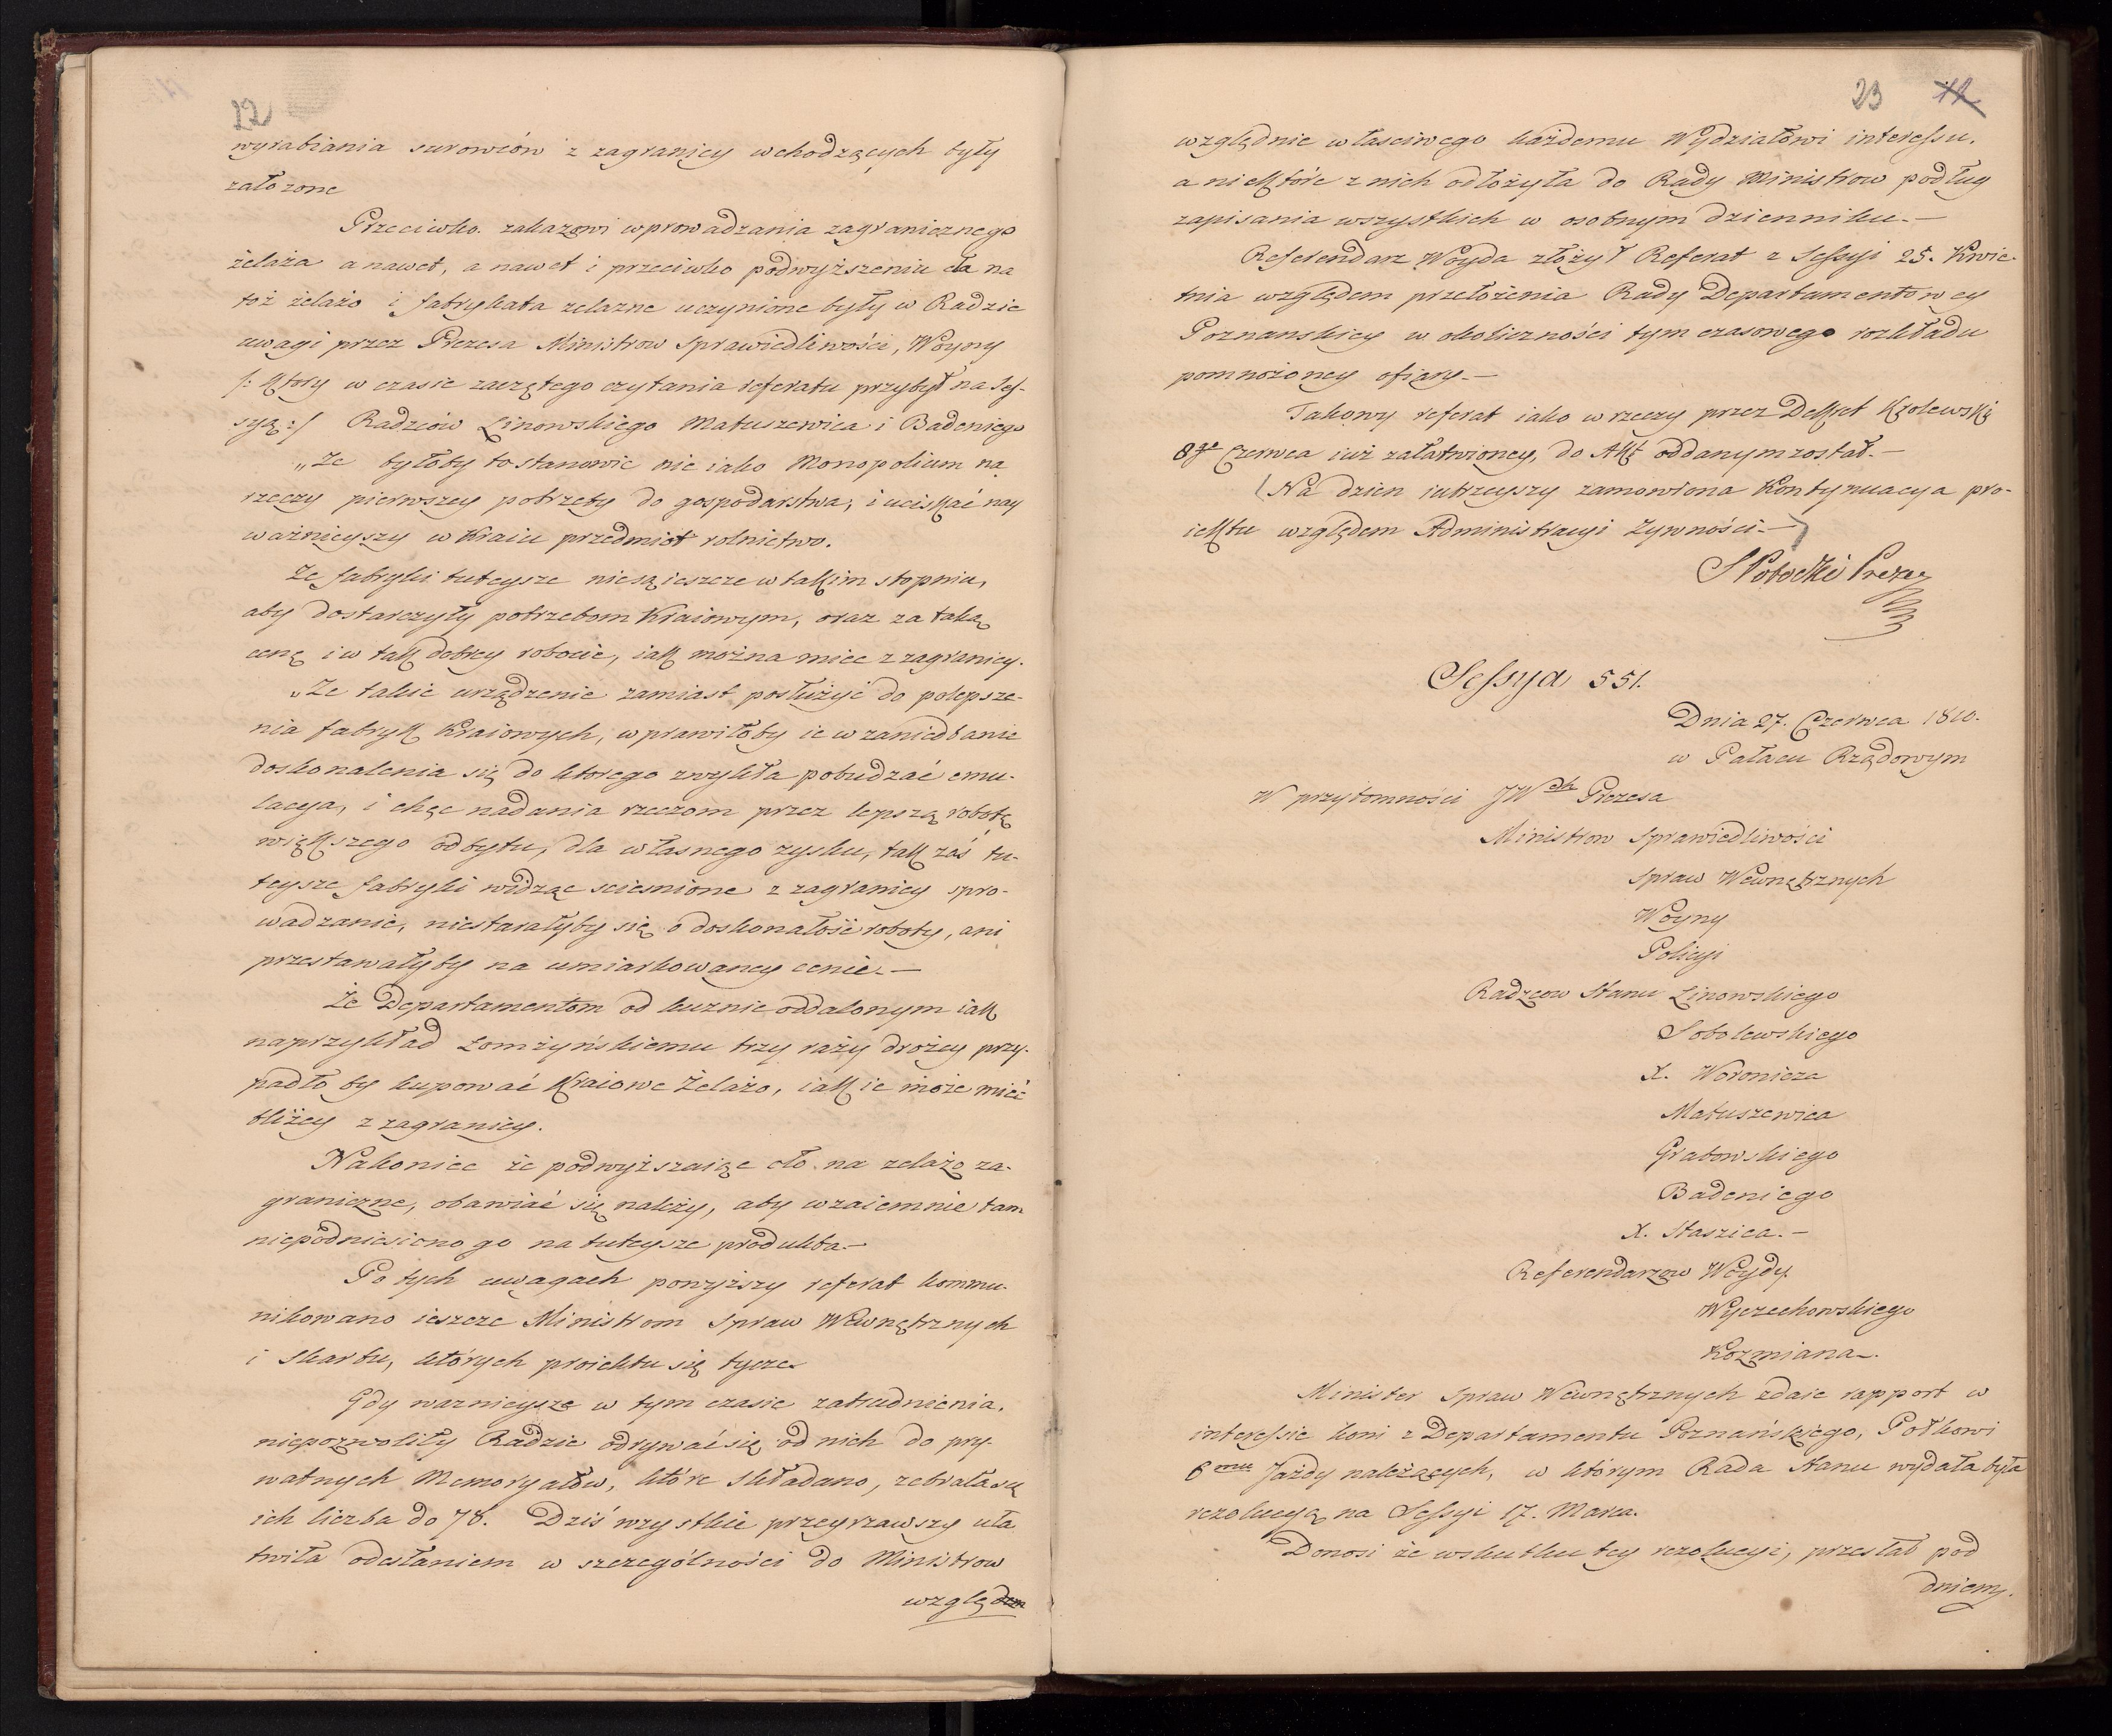 22
wyrabiania surowców z zagranicy wchodzących były
załozone
Przeciwko zakazowi wprowadzania zagranicznego
żelaża a nawet, a nawet i przeciwko podwyższeniu cła na
toż żelażo i fabrykata zelazne uczynione były w Radzie
uwagi przez Prezesa Ministrow Sprawiedliwości, Woyny
/: który w czasie zaczętego czytania referatu przybył na Ses-
syą :/ Radzców Linowskiego Matuszewica i Badeniego
„Ze byłoby to stanowic nie iako Monopolium na
rzeczy pierwszey potrzeby do gospodarstwa; i uciskać nay
ważnieyszy w Kraiu przedmiot rolnictwo.
Ze fabryki tuteysze niesą ieszcze w takim stopniu,
aby dostarczyły potrzebom Kraiowym, oraz za taką
cenę i w tak dobrey robocie, iak można miec z zagranicy.
„Ze takie urządzenie zamiast posłużyć do polepsze-
nia fabryk Kraiowych, wprawiłoby ie w zaniedbanie
doskonalenia się do ktorego zwykła pobudzać emu-
lacya, i chęc nadania rzeczom przez lepszą robotę
większego odbytu, dla własnego zysku, tak zaś tu-
teysze fabryki widząc sciesnione z zagranicy spro-
wadzanie, niestarałyby się o doskonałość roboty, ani
przestawałyby na umiarkowaney cenie.—
Że Departamentom od kuznic oddalonym iak
naprzykład Łomżyńskiemu trzy raży drożey przy-
padło by kupować Kraiowe Żelażo, iak ie może mieć
bliżey z zagranicy.
Nakoniec że podwyższaiąc cło na zelażo za-
graniczne, obawiać się należy, aby wzaiemnie tam
niepodniesiono go na tuteysze produkta.—
Po tych uwagach powyższy referat kommu-
nikowano ieszcze Ministrom Spraw Wewnętrznych
i Skarbu, których proiektu się tycze.
Gdy waznieysze w tym czasie zatrudnienia,
niepozwoliły Radzie odrywać się od nich do pry-
watnych Memoryałów, które składano, zebrała się
ich liczba do 78. Dziś wzystkie przeyrzawszy uła
twiła odesłaniem w szczególności do Ministrow
względem
23 12
względnie własciwego każdemu Wydziałowi interessu,
a niektóre z nich odłożyła do Rady Ministrow podług
zapisania wszystkich w osobnym dzienniku.—
Referendarz Woyda złożył Referat z Sessyi 25. Kwie-
tnia względem przełożenia Rady Departamentowey
Poznanskiey w okoliczności tymczasowego rozkładu
pomnożoney ofiary.—
Takowy referat iako w rzeczy przez Dekret Królewski
8go Czerwca iuż załatwioney, do Akt oddanym został.—
(Na dzien iutrzeyszy zamowiona Kontynuacya pro-
iektu względem Administracyi Zywności.—)
S Potocki Prezes
Sessya 551.
Dnia 27. Czerwca 1810.
w Pałacu Rządowym
W przytomności JWch Prezesa
Ministrow Sprawiedliwości
Spraw Wewnętrznych
Woyny
Policyi
Radzcow Stanu Linowskiego
Sobolewskiego
X. Woronicza
Matuszewica
Grabowskiego
Badeniego
X. Staszica.—
Referendarzow Woydy
Wyczechowskiego
Kozmiana.
Minister Spraw Wewnętrznych zdaie rapport w
interessie koni z Departamentu Poznańskiego, Połkowi
6mu Jazdy należących, w którym Rada Stanu wydała była
rezolucyą na Sessyi 17. Marca.
Donosi że wskutku tey rezolucyi, przesłał pod
dniem.